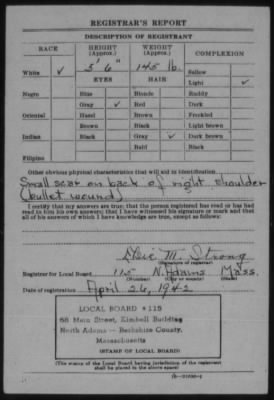 REGISTRAR'S REPORT
DESCRIPTION OF REGISTRANT
RACE HEIGHT (Approx.) WEIGHT (Approx.) COMPLEXION
5' 6" 145 lb.
White ✓ EYES HAIR Sallow
Light ✓
Negro Blue Blonde Ruddy
Gray ✓ Red Dark
Oriental Hazel Brown Freckled
Brown Black Light brown
Indian Black Gray ✓ Dark brown
Bald Black
Filipino
Other obvious physical characteristics that will aid in identification
Small scar on back of right shoulder
(bullet wound)
I certify that my answers are true; that the person registered has read or has had
read to him his own answers; that I have witnessed his signature or mark and that
all of his answers of which I have knowledge are true, except as follows:
M. Strong
(Signature of registrar)
Registrar for Local Board 115 N. Adams Mass.
(Number) (City or county) (State)
Date of registration April 26, 1942
LOCAL BOARD # 115
68 Main Street, Kimbell Building
North Adams -- Berkshire County,
Massachusetts
(STAMP OF LOCAL BOARD)
(The stamp of the Local Board having jurisdiction of the registrant
shall be placed in the above space)